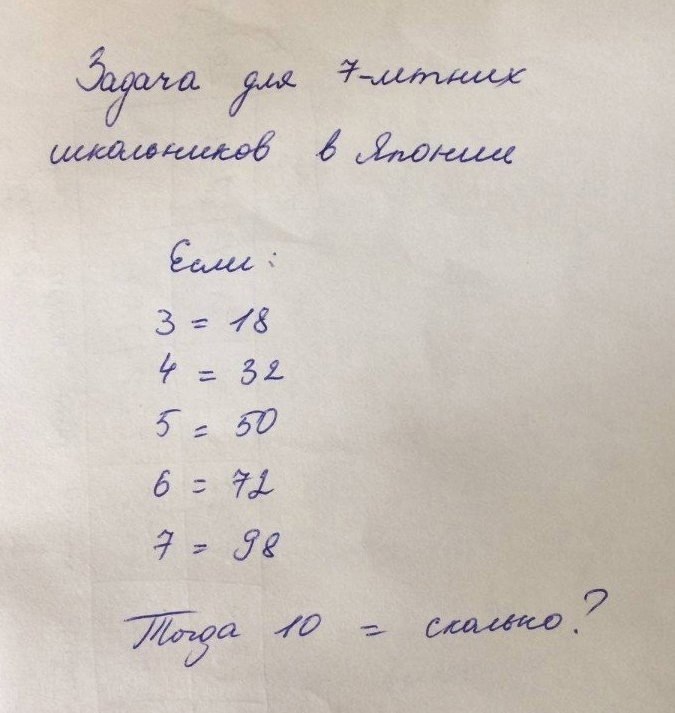 Задача для 7-летних
школьников в Японии
Если:
3 = 18
4 = 32
5 = 50
6 = 72
7 = 98
Тогда 10 = сколько?